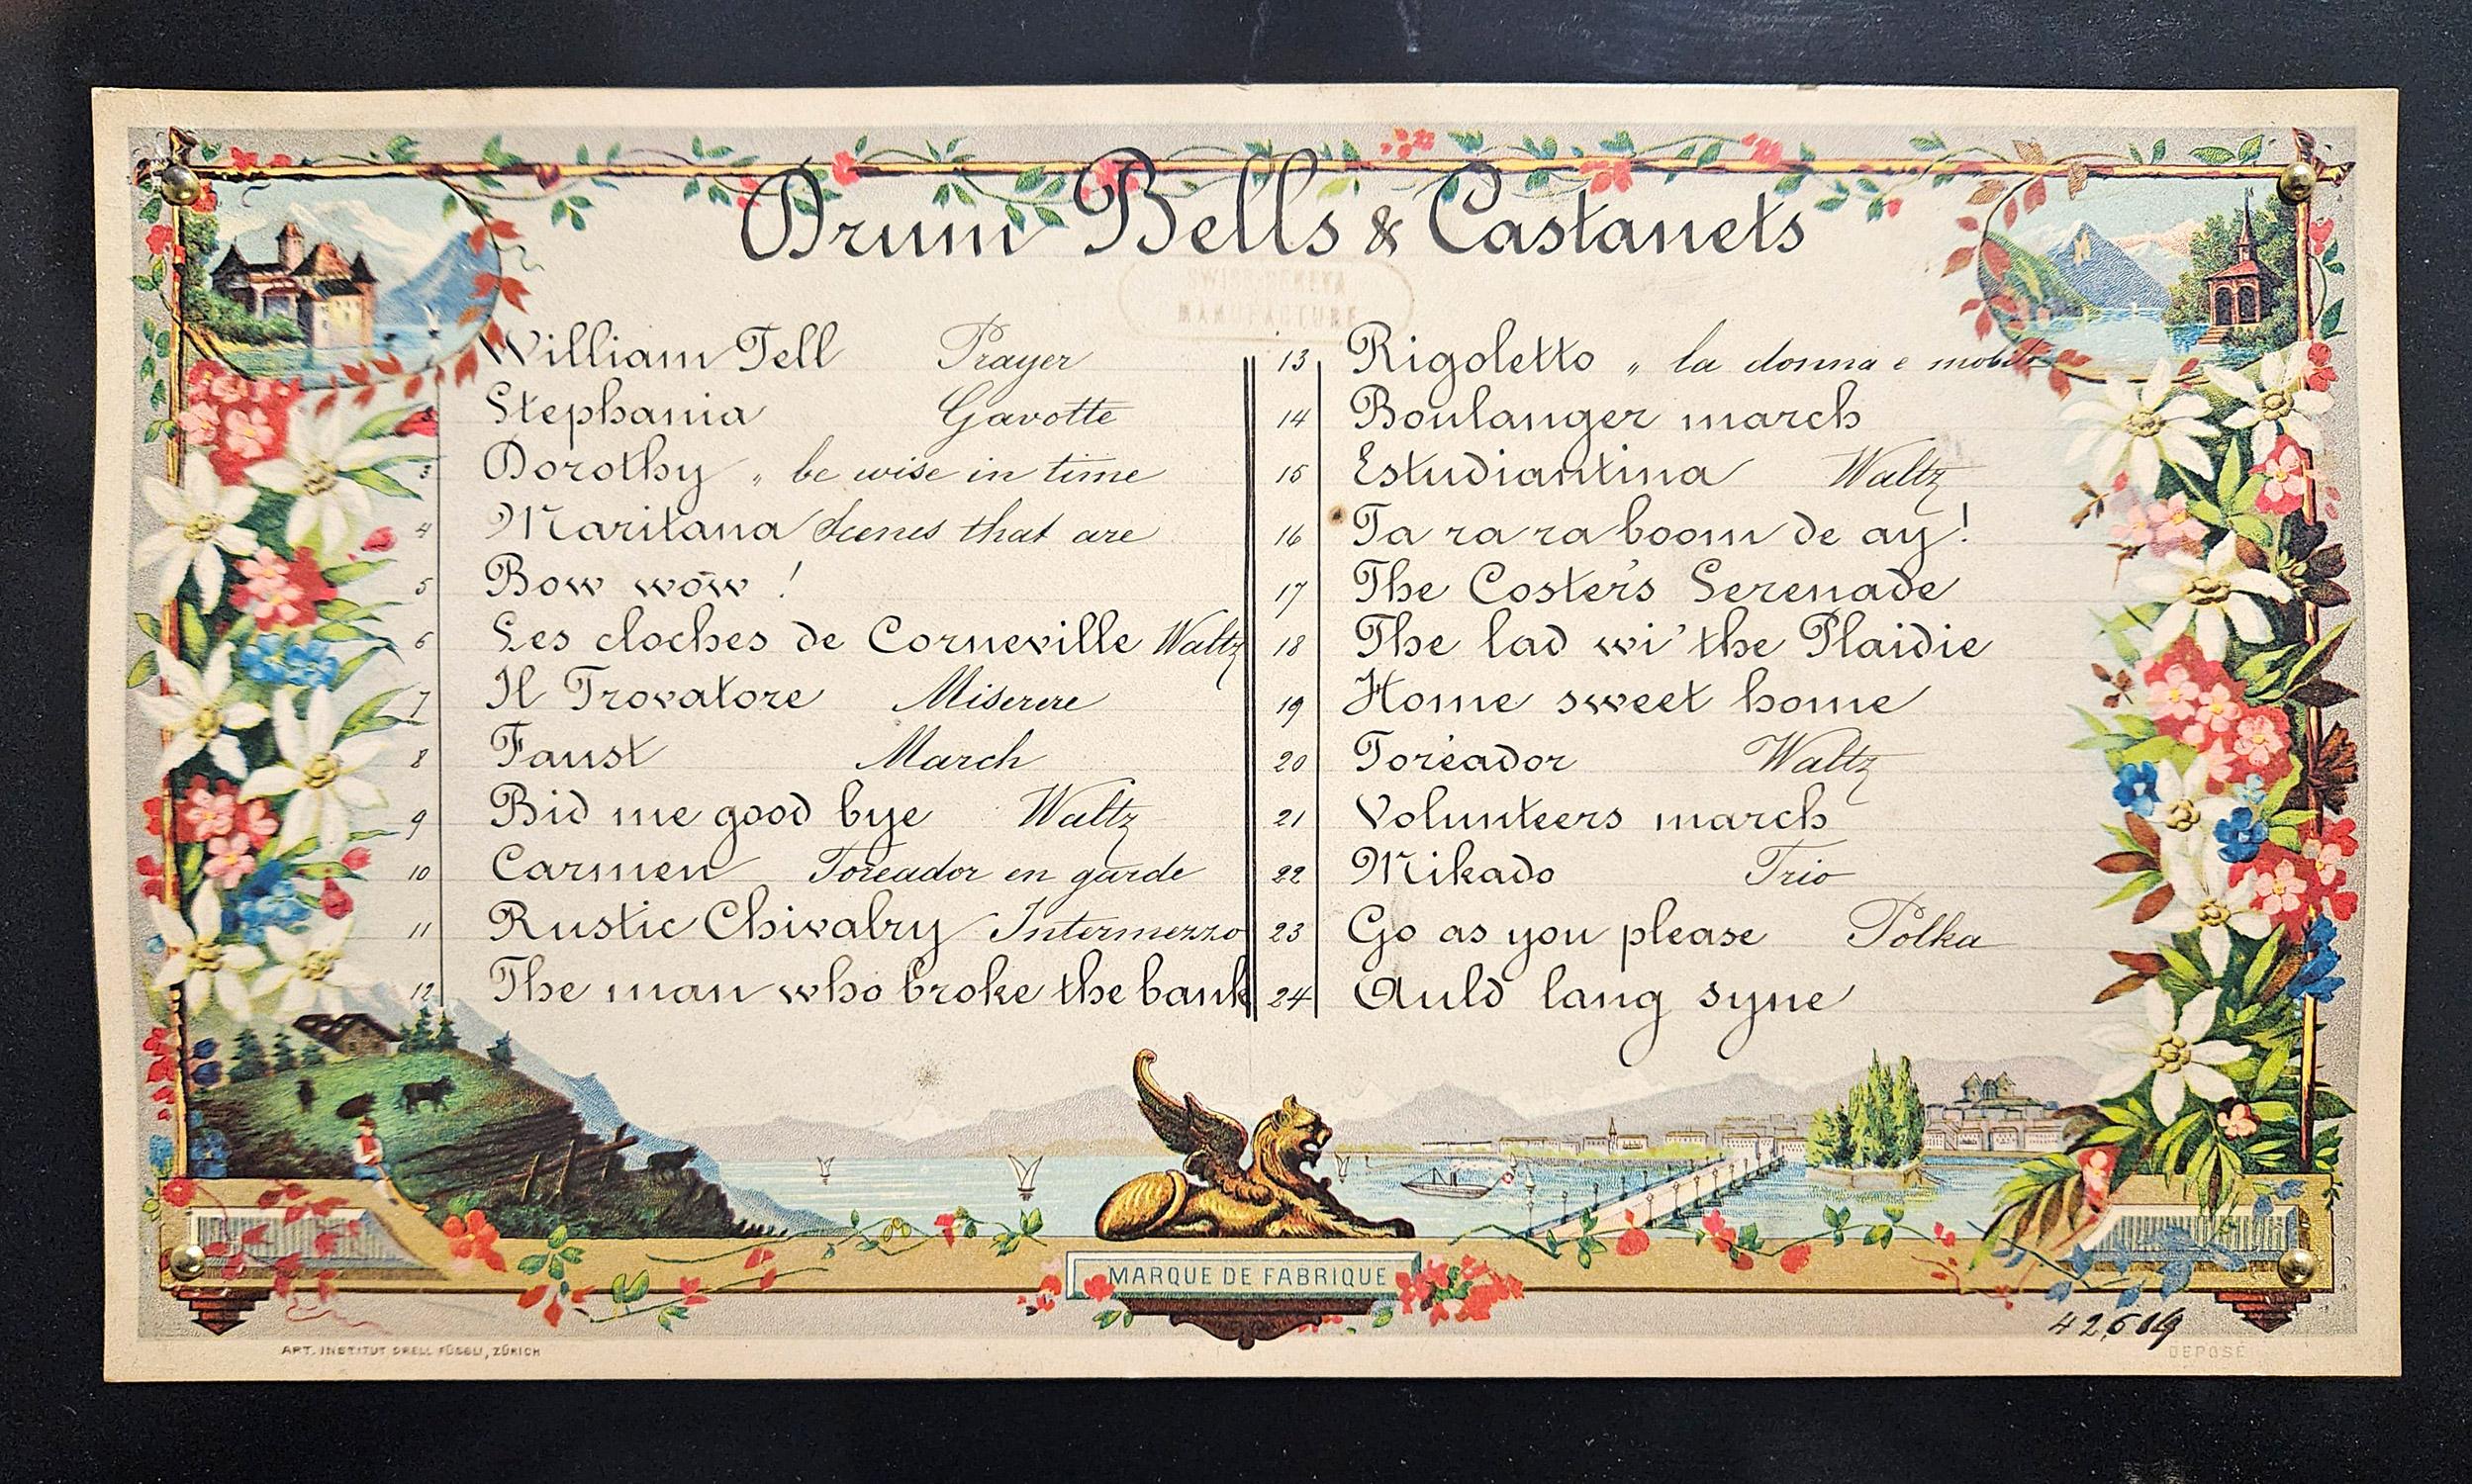 Drum Bells & Castanets
SWISS GENEVA
MANUFACTURE
William Tell Prayer
Stephania Gavotte
3 Dorothy „ be wise in time
4 Maritana Scenes that are
5 Bow wow !
6 Les cloches de Corneville Waltz
7 Il Trovatore Miserere
8 Faust March
9 Bid me good bye Waltz
10 Carmen Toreador en garde
11 Rustic Chivalry Intermezzo
12 The man who broke the bank
13 Rigoletto „ la donna e mobile
14 Boulanger march
15 Estudiantina Waltz
16 Ta ra ra boom de ay !
17 The Coster's Serenade
18 The lad wi' the Plaidie
19 Home sweet home
20 Toréador Waltz
21 Volunteers march
22 Mikado Trio
23 Go as you please Polka
24 Auld lang syne
MARQUE DE FABRIQUE
ART. INSTITUT ORELL FÜSSLI, ZÜRICH
DEPOSÉ